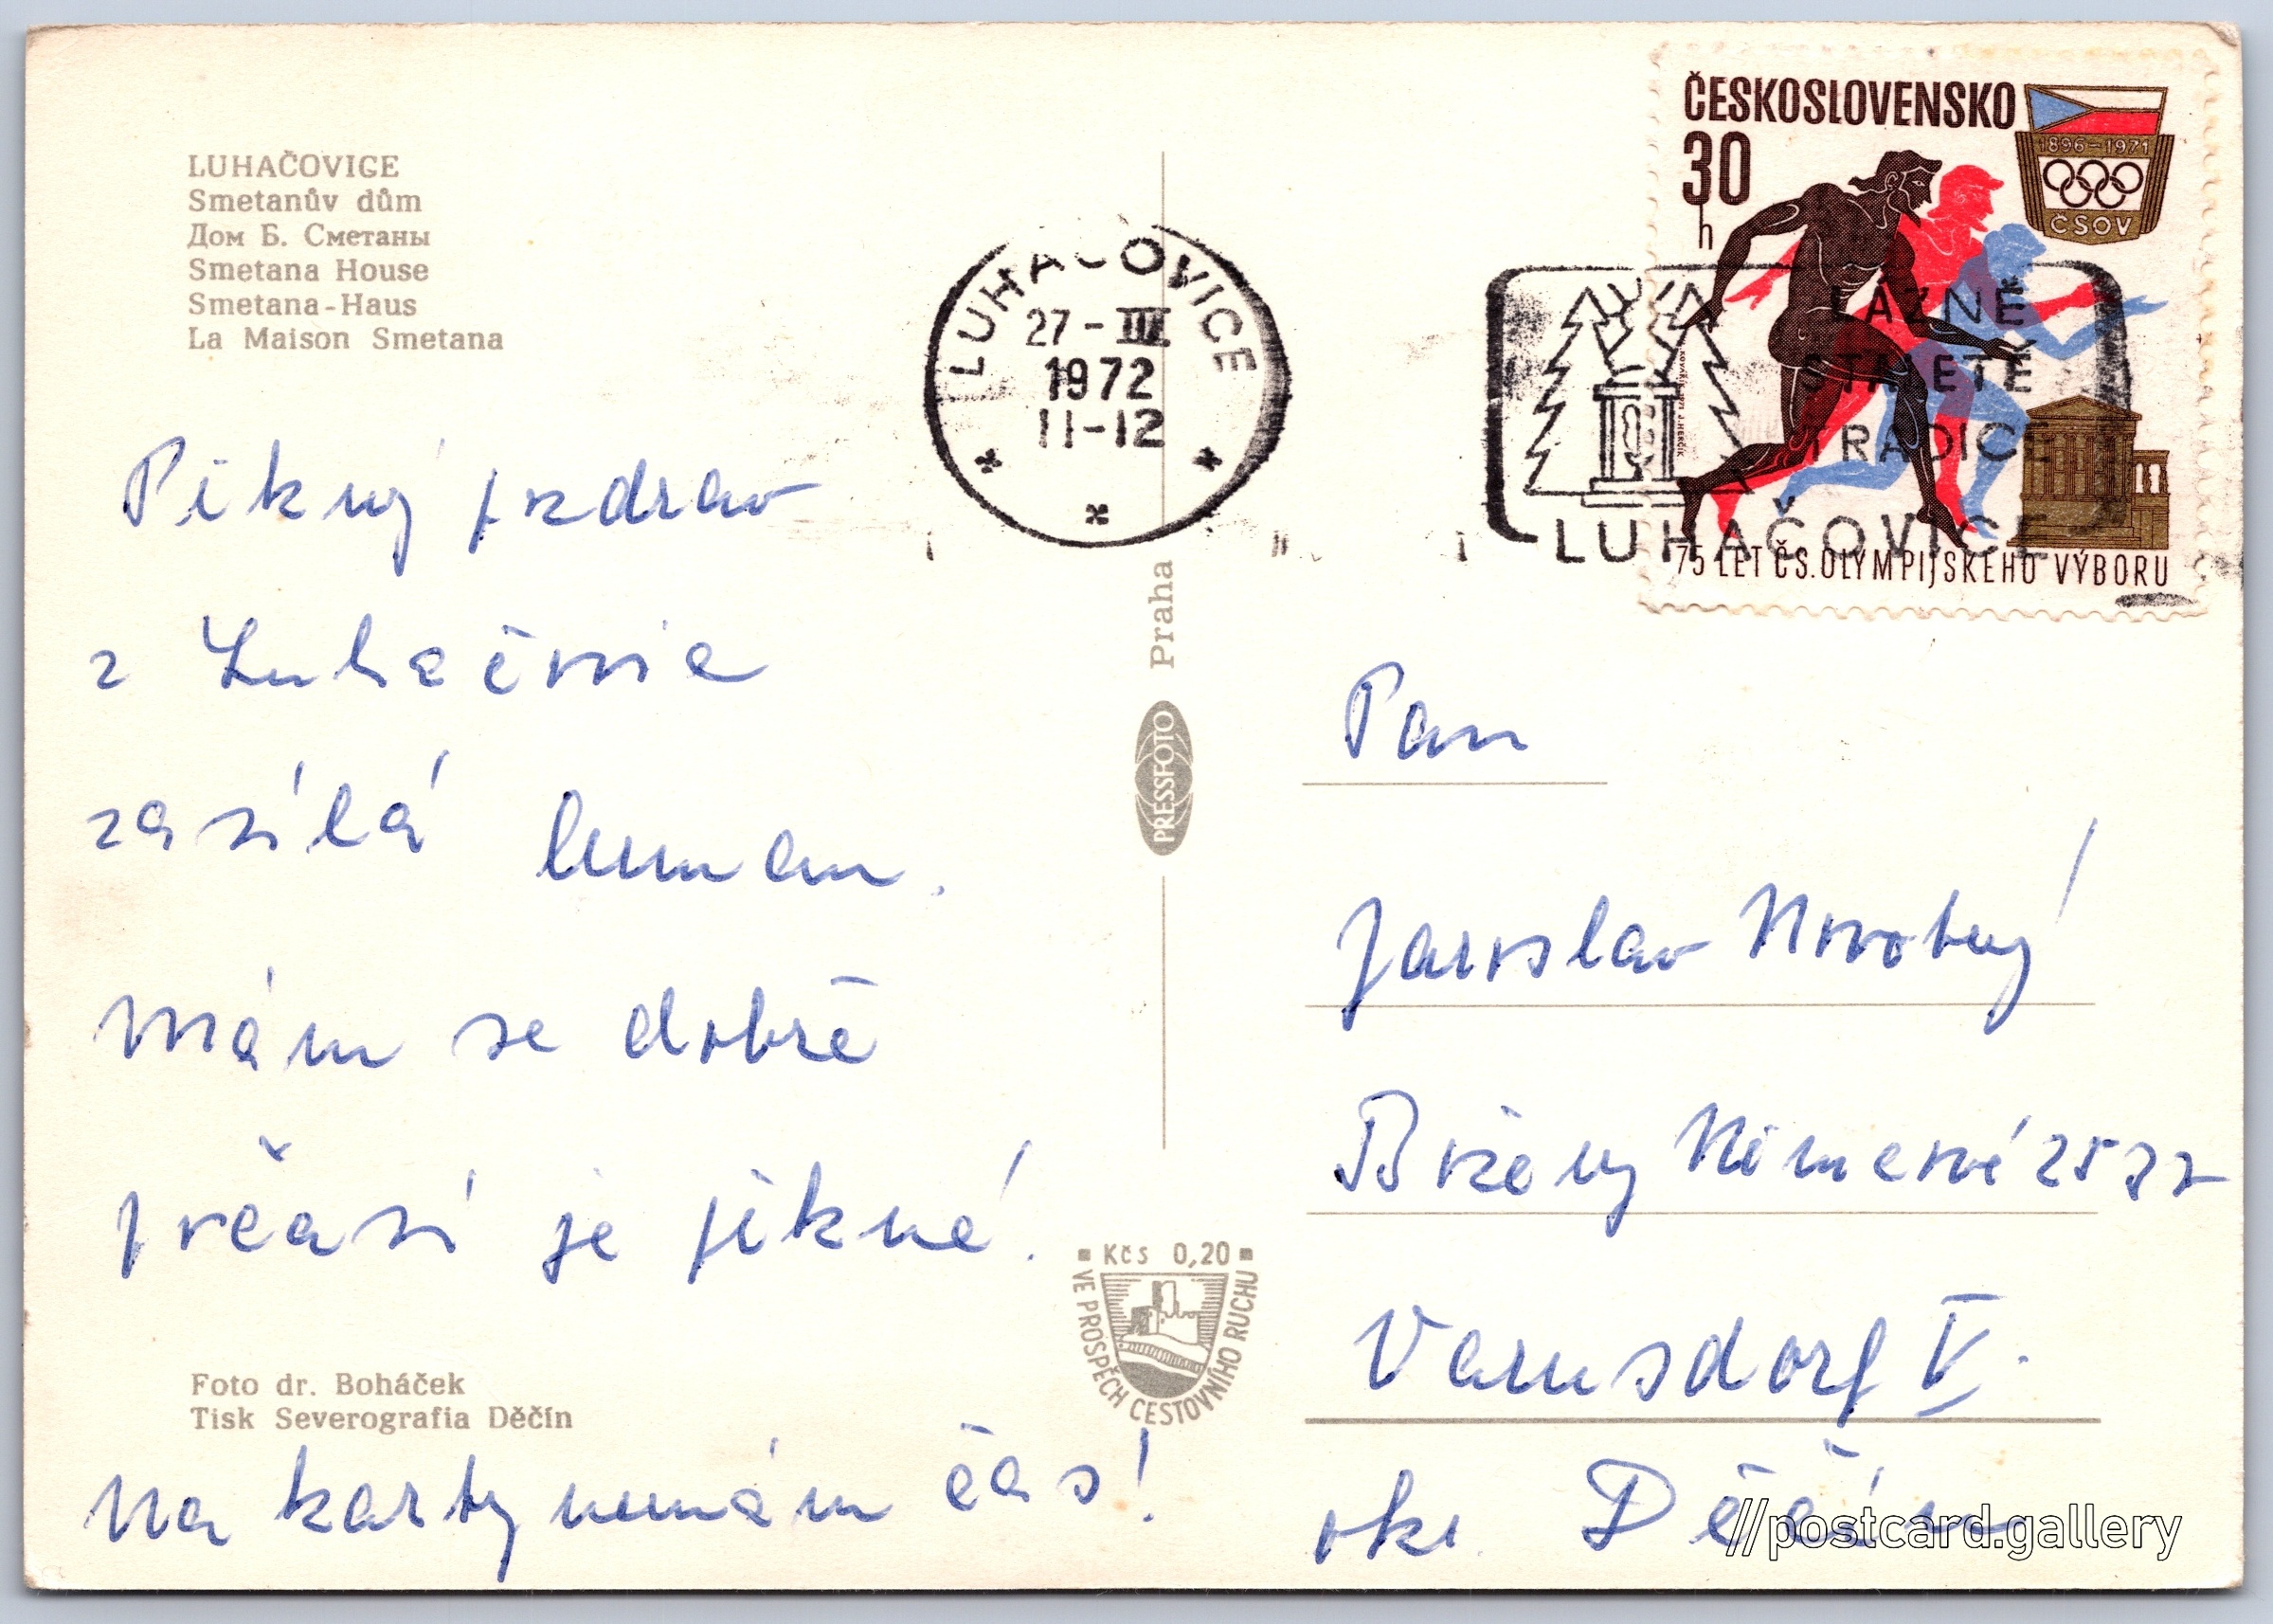 LUHAČOVICE
Smetanův dům
Дом Б. Сметаны
Smetana House
Smetana-Haus
La Maison Smetana
Pěkný pozdrav
z Luhačovic
zasílá
mám se dobře
počasí je pěkné.
Foto dr. Boháček
Tisk Severografia Děčín
Na karty nemám čas!
LUHAČOVICE
27-III
1972
11-12
Praha
PRESSFOTO
Kčs 0,20
VE PROSPĚCH CESTOVNÍHO RUCHU
ČESKOSLOVENSKO
30
h
1896-1971
ČSOV
75 LET ČS. OLYMPIJSKÉHO VÝBORU
LÁZNĚ
STALETÉ
TRADICE
LUHAČOVICE
Pan
Jaroslav Novotný
Boženy Němcové 2577
Varnsdorf V.
okr. Děčín
//postcard.gallery